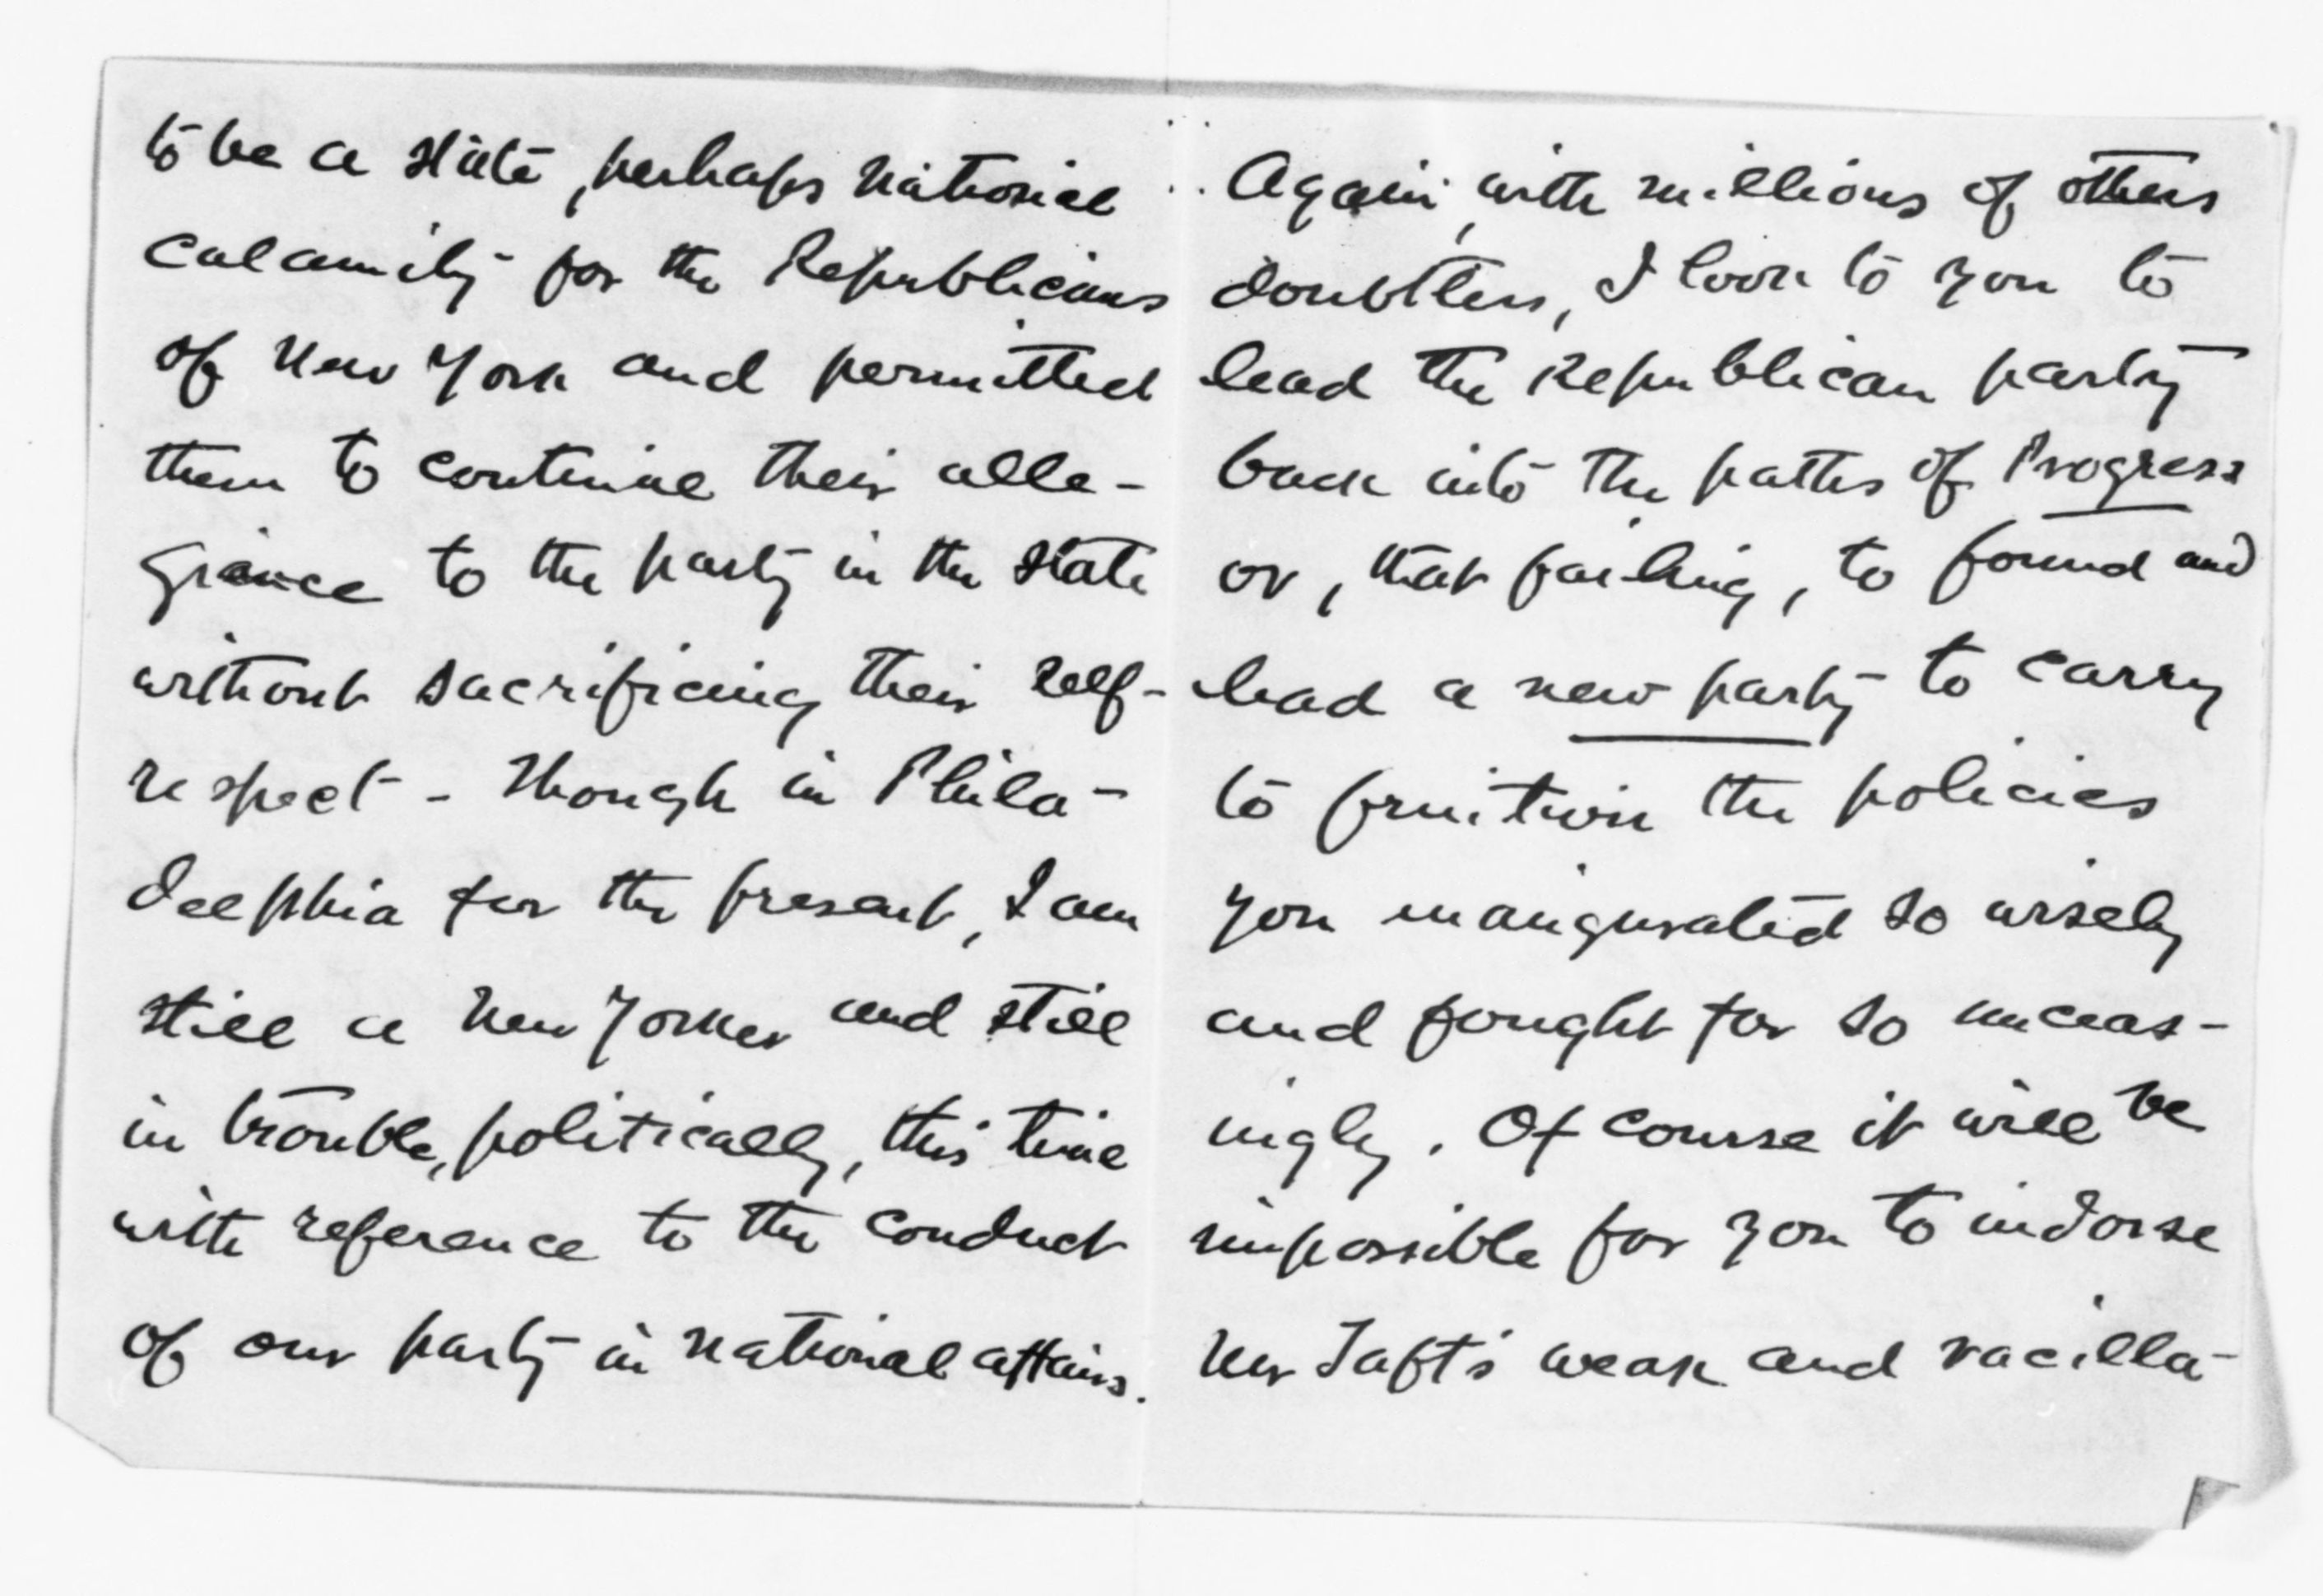 to be a state, perhaps national
calamity for the Republicans
of New York and permitted
them to continue their alle-
giance to the party in the state
without sacrificing their self-
respect - Though in Phila-
delphia for the present, I am
still a New Yorker and still
in trouble, politically, this time
with reference to the conduct
of our party in national affairs.
Again, with millions of others
doubtless, I look to you to
lead the Republican party
back into the paths of Progress
or, that failing, to found and
lead a new party to carry
to fruition the policies
you inaugurated so wisely
and fought for so unceas-
ingly. Of course it will be
impossible for you to indorse
Mr Taft's weak and vacilla-